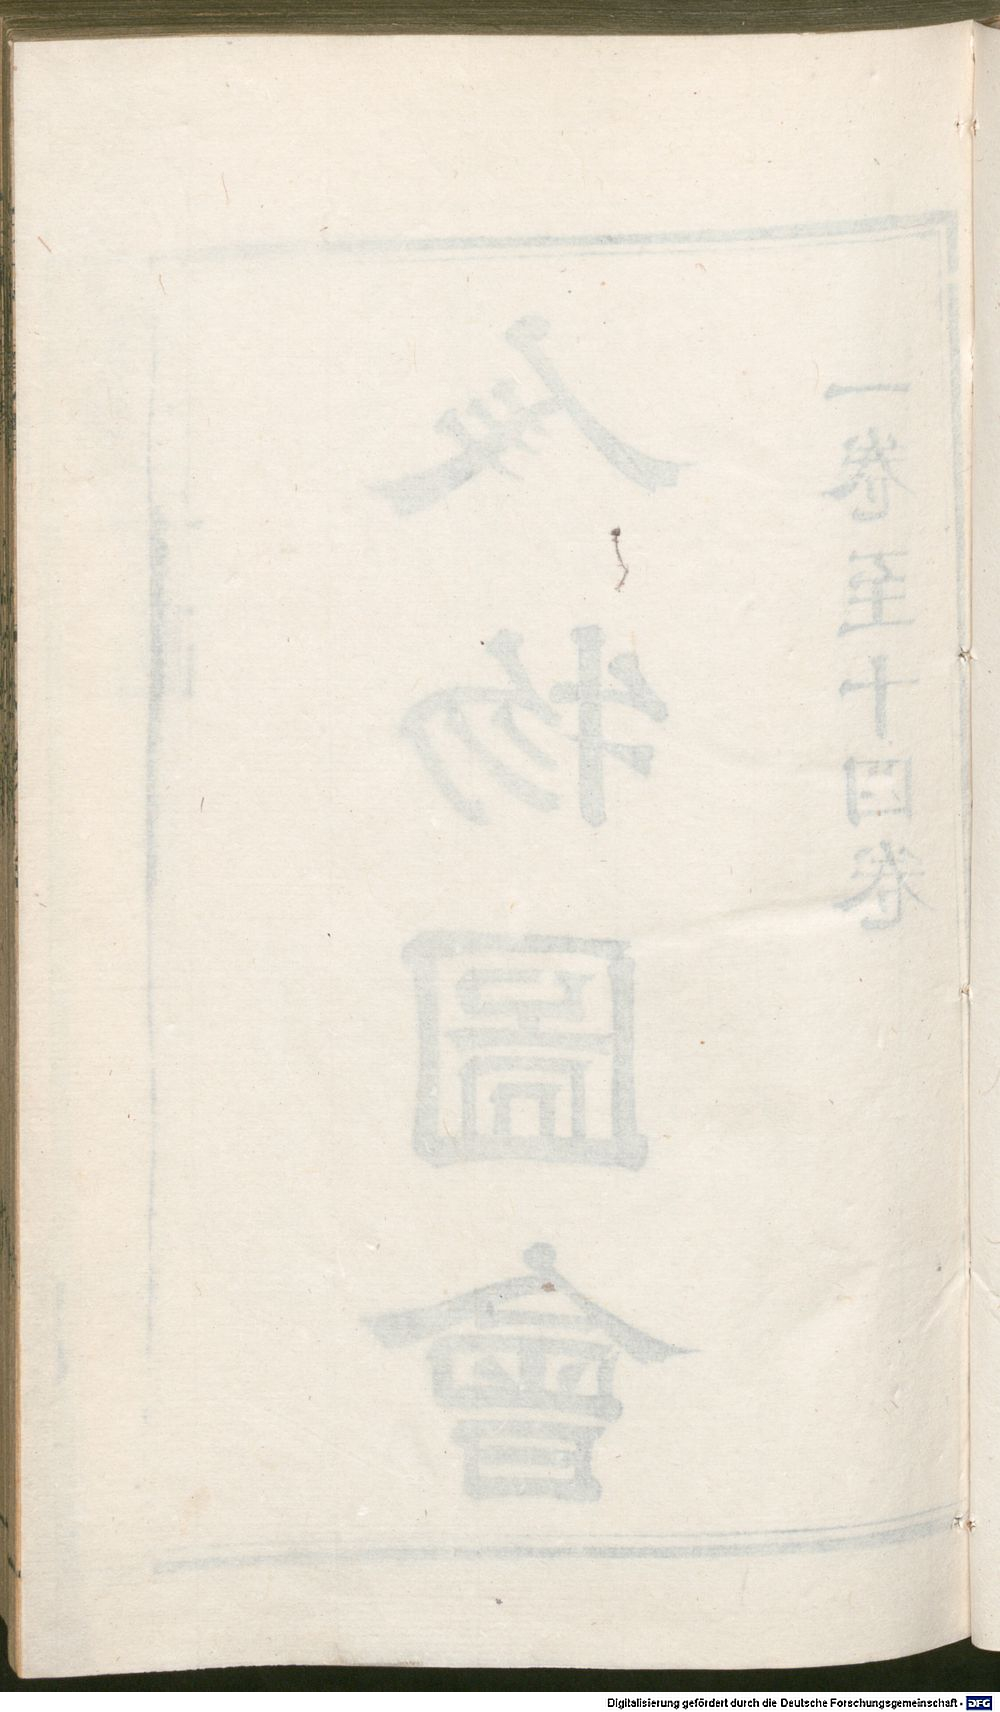 人物圖會
一卷至十四卷
Digitalisierung gefördert durch die Deutsche Forschungsgemeinschaft - DFG